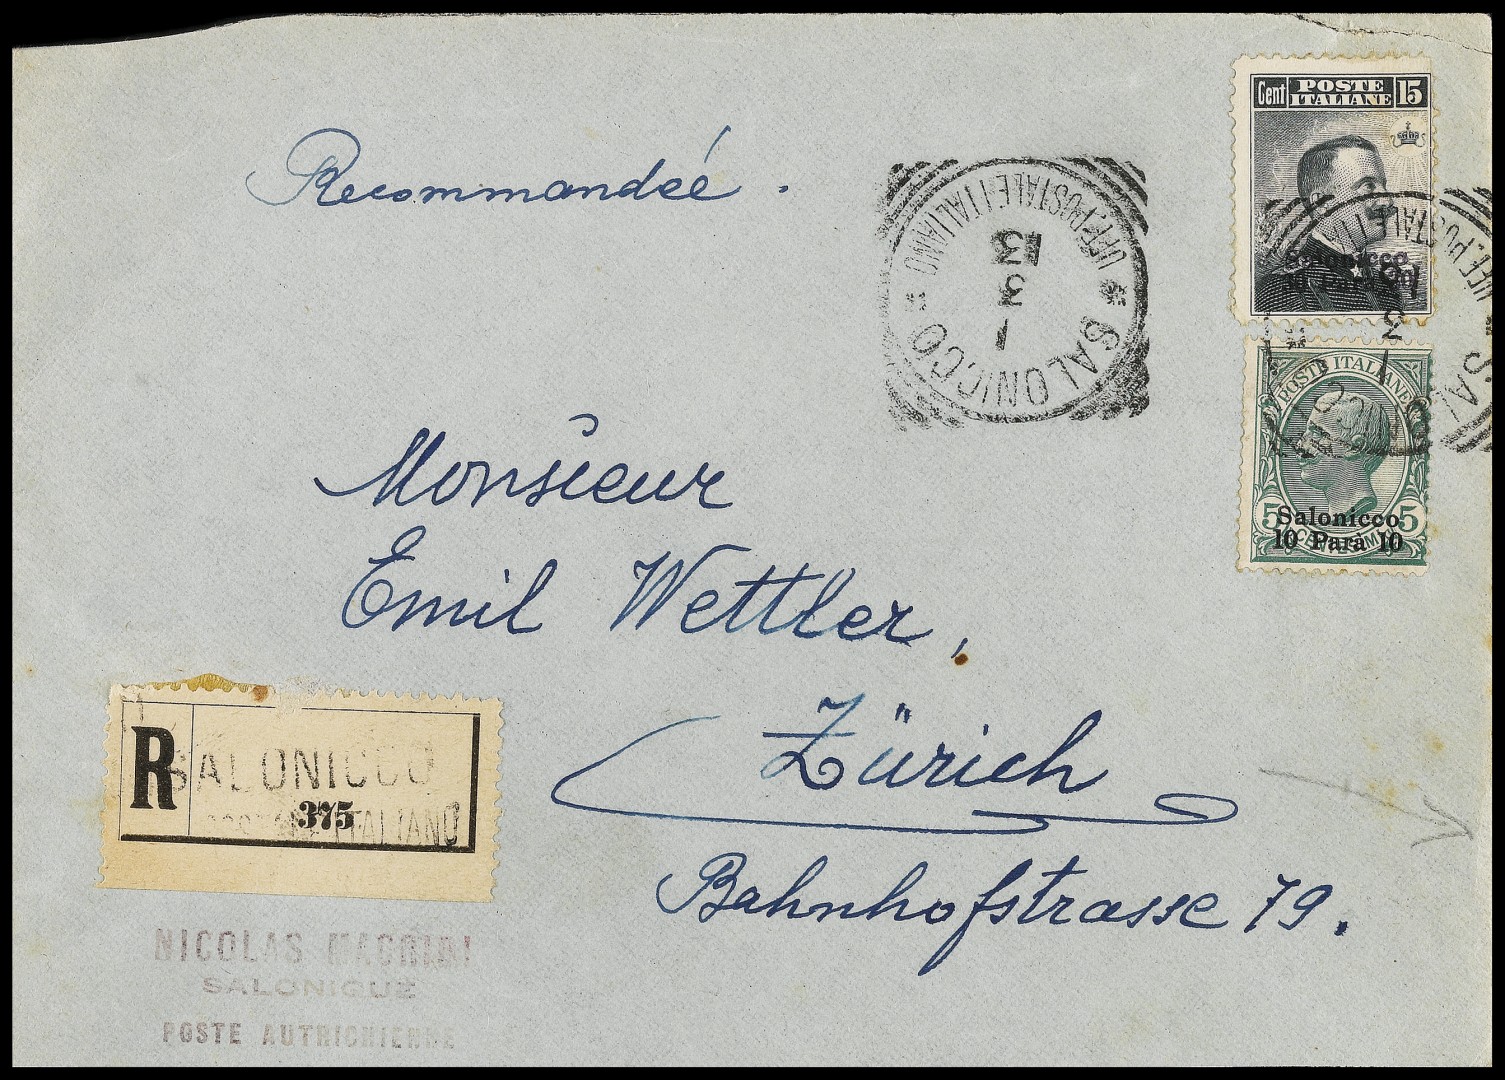 Cent POSTE ITALIANE 15
Salonicco
Recommandée.
SALONICCO
UFF. POSTALE ITALIANO
1 3 13
POSTE ITALIANE
5 5
Salonicco
10 Para 10
Monsieur
Emil Wettler,
Zürich
Bahnhofstrasse 79.
R SALONICCO
375
ITALIANO
NICOLAS
SALONIQUE
POSTE AUTRICHIENNE